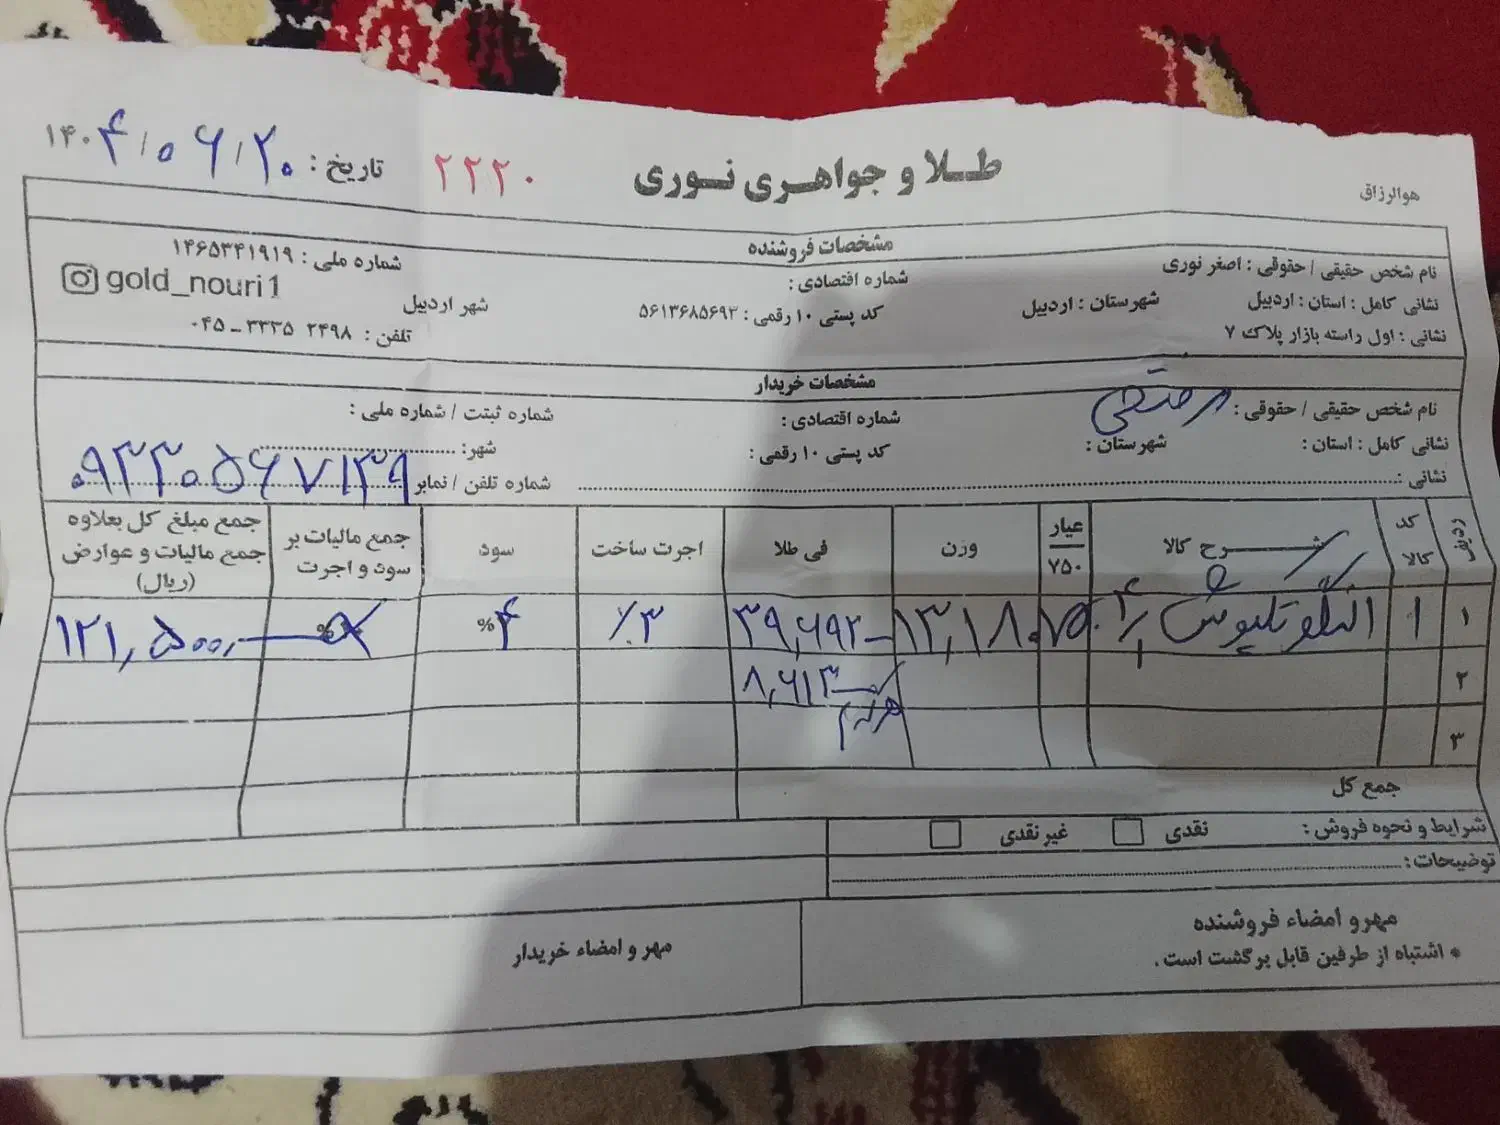 هوالرزاق
طلا و جواهری نوری
۲۲۲۰
تاریخ : ۱۴۰۴/۰۶/۲۰
مشخصات فروشنده
نام شخص حقیقی / حقوقی : اصغر نوری شماره اقتصادی : شماره ملی : ۱۴۶۵۳۴۱۹۱۹
نشانی کامل : استان : اردبیل شهرستان : اردبیل کد پستی ۱۰ رقمی : ۵۶۱۳۶۸۵۶۹۳ شهر اردبیل gold_nouri1
نشانی : اول راسته بازار پلاک ۷ تلفن : ۰۴۵-۳۳۳۵ ۲۴۹۸
مشخصات خریدار
نام شخص حقیقی / حقوقی : شماره اقتصادی : شماره ثبتت / شماره ملی :
نشانی کامل : استان : شهرستان : کد پستی ۱۰ رقمی : شهر:
نشانی : شماره تلفن / نمابر ۰۹۳۳۰۵۶۷۱۳۹
ردیف کد کالا شرح کالا عیار ۷۵۰ وزن فی طلا اجرت ساخت سود جمع مالیات بر سود و اجرت جمع مبلغ کل بعلاوه جمع مالیات و عوارض (ریال)
۱ ۱ النگو تکپوش ۷۵۰ ۱۳,۱۸۰ ۳۹,۶۹۲- ٪۳ %۴ ۱۲۱,۵۰۰,
۲ ۸,۶۱۳
۳ هرگرم
جمع کل
شرایط و نحوه فروش : نقدی غیر نقدی
توضیحات :
مهر و امضاء فروشنده مهر و امضاء خریدار
* اشتباه از طرفین قابل برگشت است .